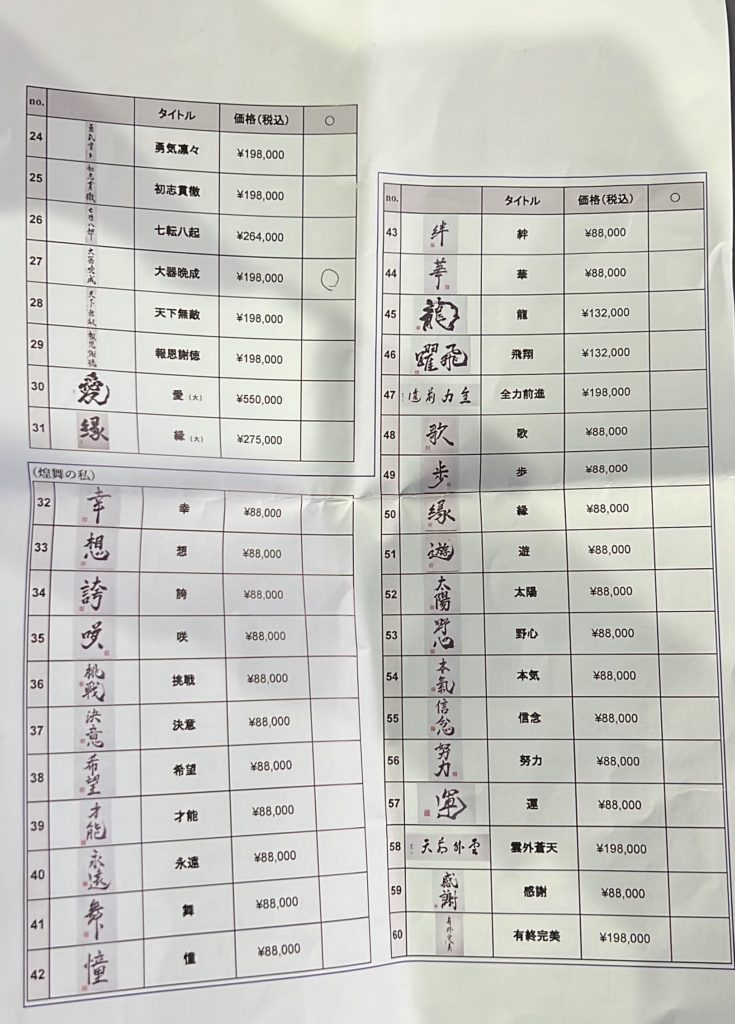 no. タイトル 価格(税込) ○
24 勇気凛々 ¥198,000
25 初志貫徹 ¥198,000
26 七転八起 ¥264,000
27 大器晩成 ¥198,000 ○
28 天下無敵 ¥198,000
29 報恩謝徳 ¥198,000
30 愛 愛(大) ¥550,000
31 縁 縁(大) ¥275,000
(煌舞の私)
32 幸 幸 ¥88,000
33 想 想 ¥88,000
34 誇 誇 ¥88,000
35 咲 咲 ¥88,000
36 挑戦 挑戦 ¥88,000
37 決意 決意 ¥88,000
38 希望 希望 ¥88,000
39 才能 才能 ¥88,000
40 永遠 永遠 ¥88,000
41 舞 舞 ¥88,000
42 憧 憧 ¥88,000
no. タイトル 価格(税込) ○
43 絆 絆 ¥88,000
44 華 華 ¥88,000
45 龍 龍 ¥132,000
46 飛翔 ¥132,000
47 全力前進 ¥198,000
48 歌 歌 ¥88,000
49 歩 歩 ¥88,000
50 縁 縁 ¥88,000
51 遊 遊 ¥88,000
52 太陽 太陽 ¥88,000
53 野心 野心 ¥88,000
54 本氣 本気 ¥88,000
55 信念 信念 ¥88,000
56 努力 努力 ¥88,000
57 運 運 ¥88,000
58 雲外蒼天 ¥198,000
59 感謝 感謝 ¥88,000
60 有終完美 ¥198,000